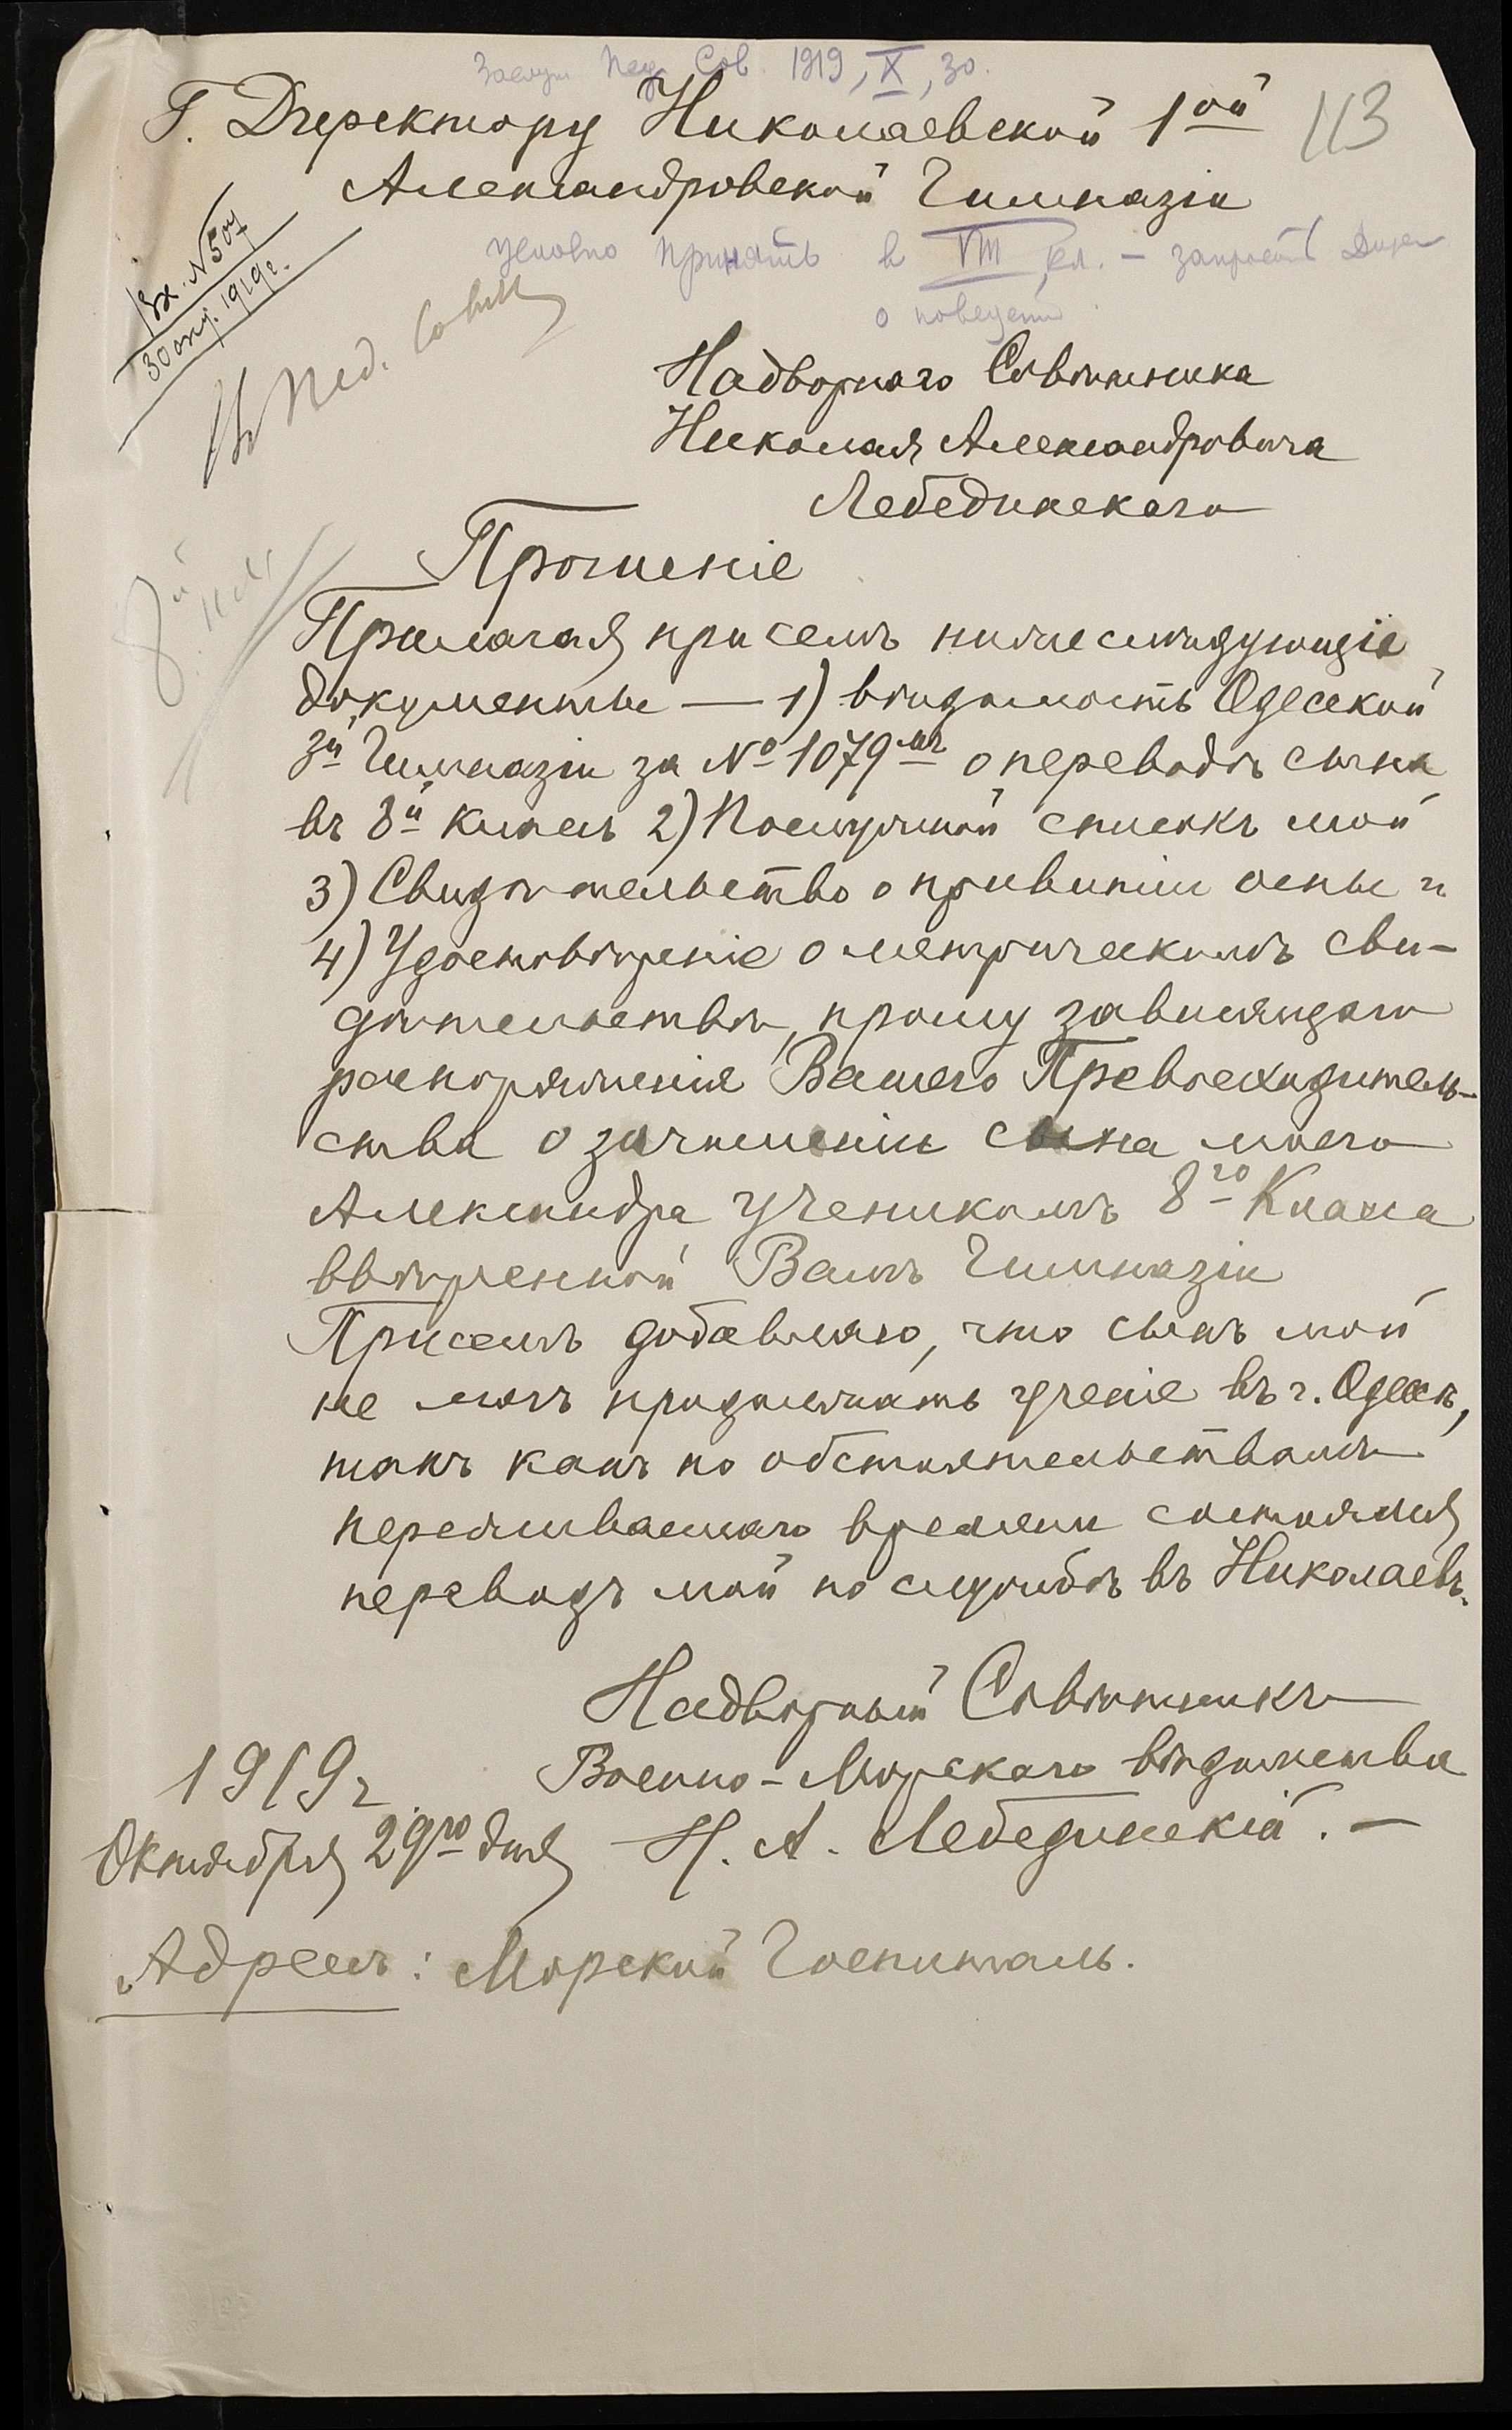 Пед. Сов. 1919, X, 30.
Г. Директору Николаевской 1ой
113
Александровской Гимназiи
Вх. N 507
30 окт. 1919 г.
условно принять в VIII кл. –
о поведении
В Пед. Совет
Надворнаго Совѣтника
Николая Александровича
Лебединскаго
Прошенiе
8й кл.
Прилагая при семъ нижеслѣдующiе
документы — 1) вѣдомость Одесской
3й Гимназiи за № 1079мъ о переводѣ сына
въ 8й классъ 2) Послужной списокъ мой
3) Свидѣтельство о привитiи оспы и
4) Удостовѣренiе о метрическомъ сви-
дѣтельствѣ, прошу зависящаго
распоряженiя Вашего Превосходитель-
ства о зачисленiи сына моего
Александра ученикомъ 8го Класса
ввѣренной Вамъ Гимназiи
Присемъ добавляю, что сынъ мой
не могъ продолжать ученiе въ г. Одессѣ,
такъ какъ по обстоятельствамъ
переживаемаго времени состоялся
переводъ мой по службѣ въ Николаевъ.
Надворный Совѣтникъ
1919 г.
Военно-Морскаго вѣдомства
Октября 29го дня
Н. А. Лебединскiй. —
Адресъ: Морской Госпиталь.